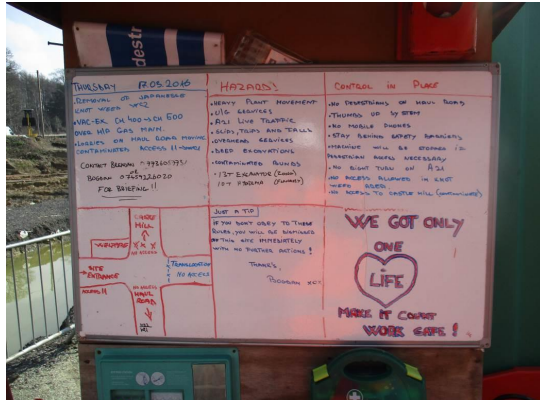 destr
THURSDAY 17.03.2016
• REMOVAL OF JAPANESE
KNOT WEED
• VAC-EX CH 400 → CH 600
OVER H/P GAS MAIN.
• LORRIES ON HAUL ROAD MOVING
CONTAMINATED
CONTACT BRENDAN
OR
BOGDAN
FOR BRIEFING!!
HAZARD!
• HEAVY PLANT MOVEMENT
• U/G SERVICES
• A21 LIVE TRAFFIC
• SLIPS, TRIPS AND FALLS
• OVERHEAD SERVICES
• DEEP EXCAVATIONS
• CONTAMINATED BUNDS
• 13T EXCAVATOR
CONTROL IN PLACE
• NO PEDESTRIANS ON HAUL ROAD
• THUMBS UP SYSTEM
• NO MOBILE PHONES
• STAY BEHIND SAFETY BARRIERS
• MACHINE WILL BE STOPPED IF
PEDESTRIAN ACCESS NECESSARY
• NO RIGHT TURN ON A21
• NO ACCESS ALLOWED IN KNOT
WEED AREA
• NO ACCESS TO CASTLE HILL
HILL
X X X
NO ACCESS
→ SITE
ENTRANCE
ACCESS !!
NO ACCESS
HAUL
ROAD
TRANSLOCATION
NO ACCESS
JUST A TIP
IF YOU DON'T OBEY TO THESE
RULES, YOU WILL BE DISMISSED
OF THIS SITE IMMEDIATELY
WITH NO FURTHER ACTIONS!
THANKS,
WE GOT ONLY
ONE
LIFE
MAKE IT COUNT
WORK SAFE!